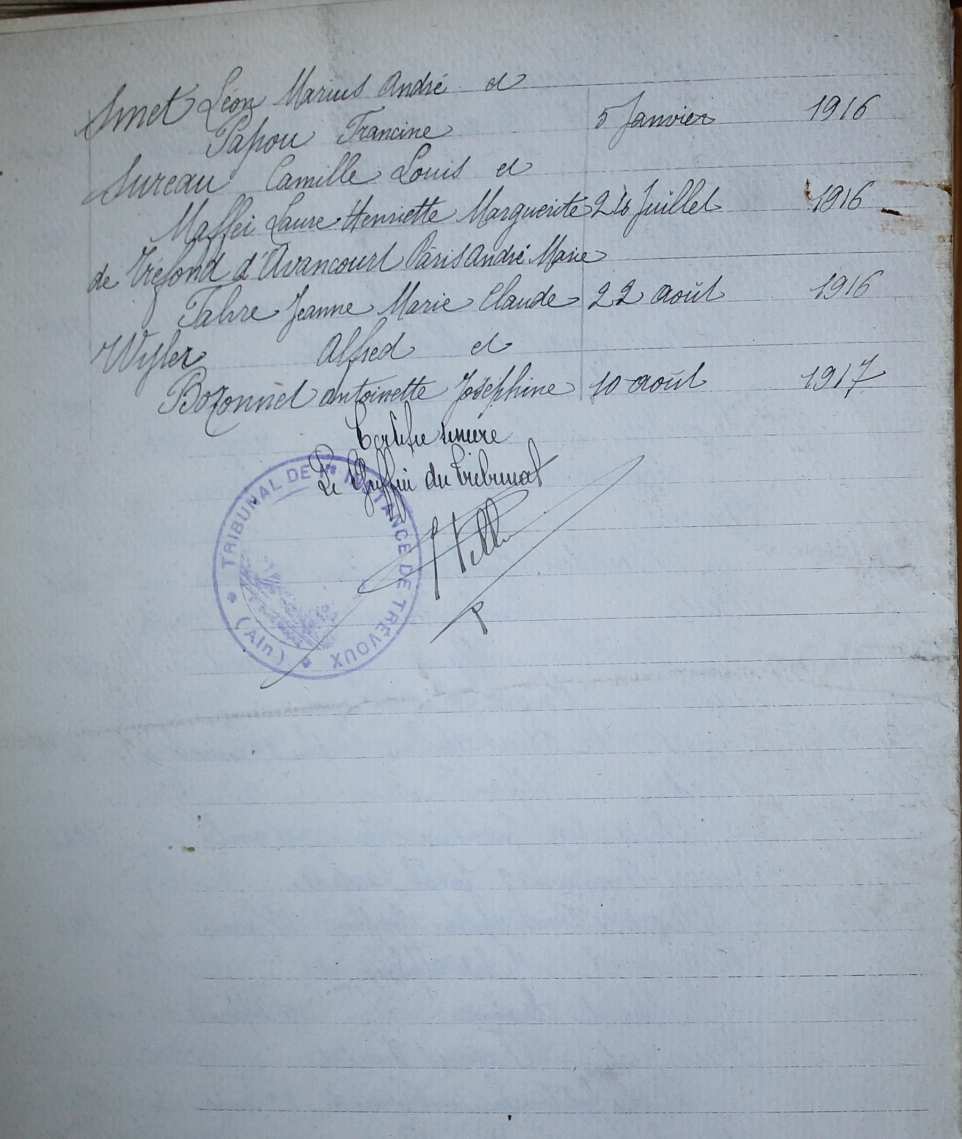 Smet Léon Marius André et
Papou Francine 5 Janvier 1916
Sureau Camille Louis et
Maffei Laure Henriette Marguerite 26 Juillet 1916
de Tréfond d'Avancourt Pâris André Marie
Fabre Jeanne Marie Claude 22 août 1916
Wyler Alfred et
Bozonnet Antoinette Joséphine 10 août 1917
Certifié sincère
Le Greffier du Tribunal
TRIBUNAL DE INSTANCE DE TRÉVOUX
(Ain)